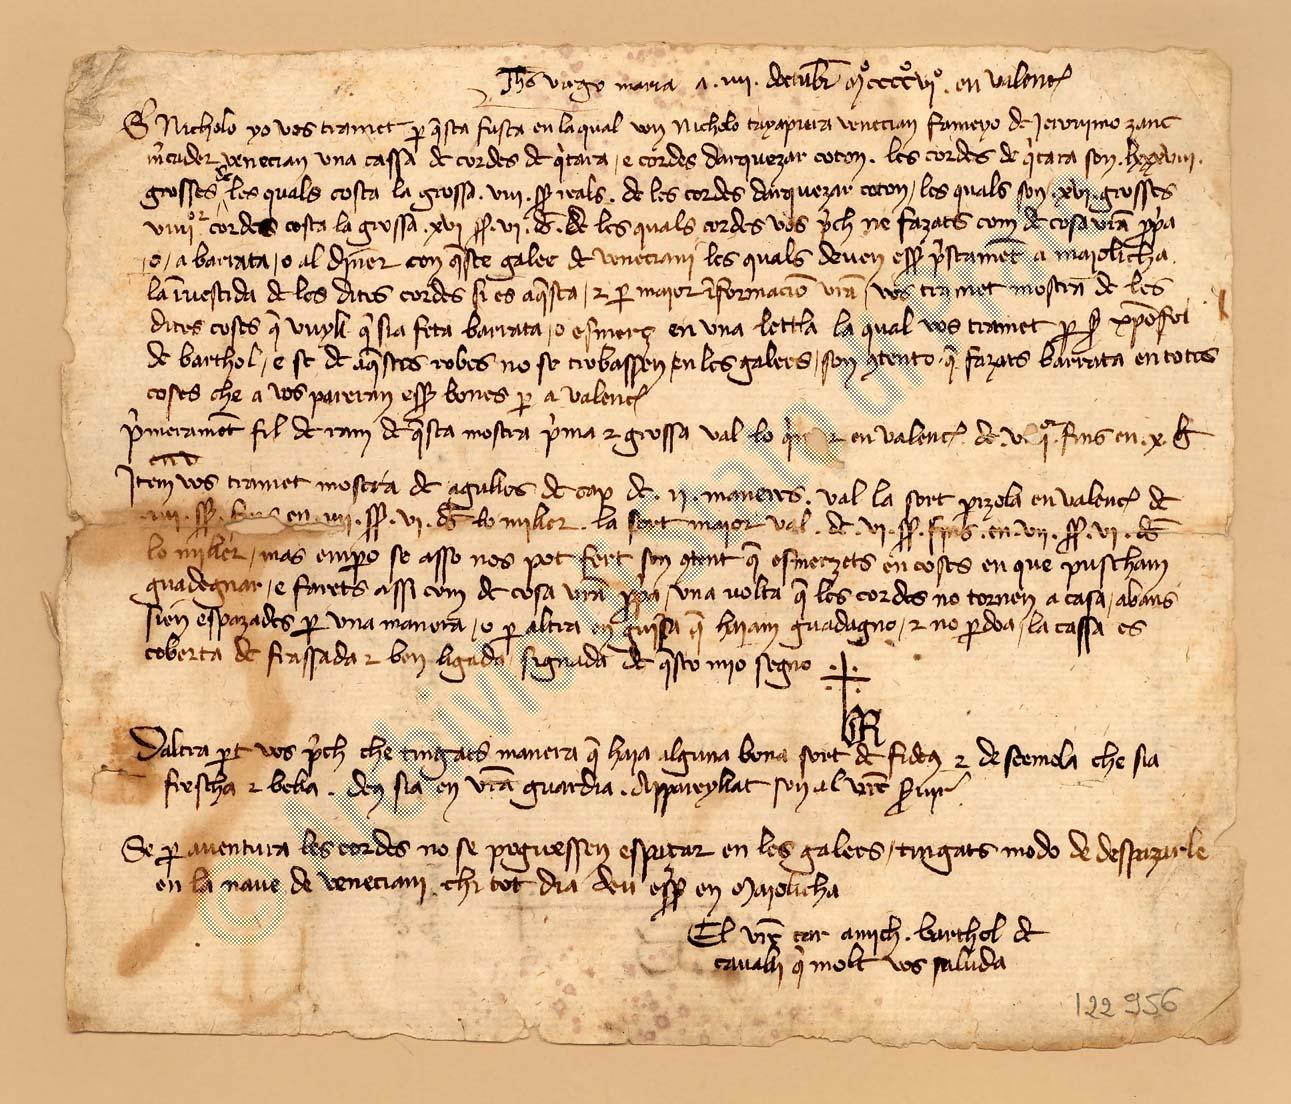 Jhs virgo maria a .iiii. doctubr̄ Mº ccccº viº. en valenc̄
Sr Nicholo yo vos tramet per q̄sta fusta en la qual ven Nicholo tayapiera venecian fameyo de Jeronimo zane
m̄cader venecian una cassa de cordes de q̄tara / e cordes darquezar coton. les cordes de q̄tara son .lxxxviii.
grosses / les quals costa la grossa .viii. ss reals. de les cordes darquezar coton / les quals son .xvi. grosses
cordes costa la grossa .xvi ss. vi. ds. de les quals cordes vos p̄ch ne fazats com de cosa vr̄a p̄pa
o / a barrata / o al dīner con q̄ste galee de veneciani les quals deven ess̄ p̄stament a maiolicha.
la īvestida de les dites cordes si es aq̄sta / et per maior īformacio vr̄a / vos tramet mostra de les
dites coses q̄ vuyll q̄ sia feta barrata / o esmerz en una lettra la qual vos tramet per sr xp̄ofol
de barthol / e se de aq̄stes robes no se trobassen en les galees / son 9tento q̄ fazats barrata en totes
coses che a vos pareran ess̄ bones per a valenc̄
p̄merament fil de ram de q̄sta mostra p̄ma et grossa val lo en valenc̄. de fins en .x. £
Item vos tramet mostra de agulles de cap de .ii. maneres. val la sort pizola en valenc̄ de
ss. en ss. vi. ds lo miller. la sort maior val. de .vi. ss. fins. en. vii. ss. vi. ds
lo miller / mas emp̄o se asso nos pot fert son 9tent q̄ esmerzets en coses en que puscham
guadegnar / e farets assi com de cosa vr̄a p̄pa / una volta q̄ les cordes no tornen a casa / abans
sien espazades per una manera / o per altra en guisa q̄ haiam guadagno / et no p̄doa / la cassa es
coberta de frassada et ben ligada signada de q̄sto mio segno
Daltra part vos p̄ch che tingats manera q̄ haia alguna bona sort de fideus et de semola che sia
frescha et bella. deu sia en vr̄a guardia. Appareyllat son al vr̄e
Se per aventura les cordes no se poguessen espazar en les galees / tingats modo de despazarle
en la nave de veneciani chi tot dia deu ess̄ en Maiolicha
El vr̄e car amich. barthol de
cavalli q̄ molt vos saluda
122 956